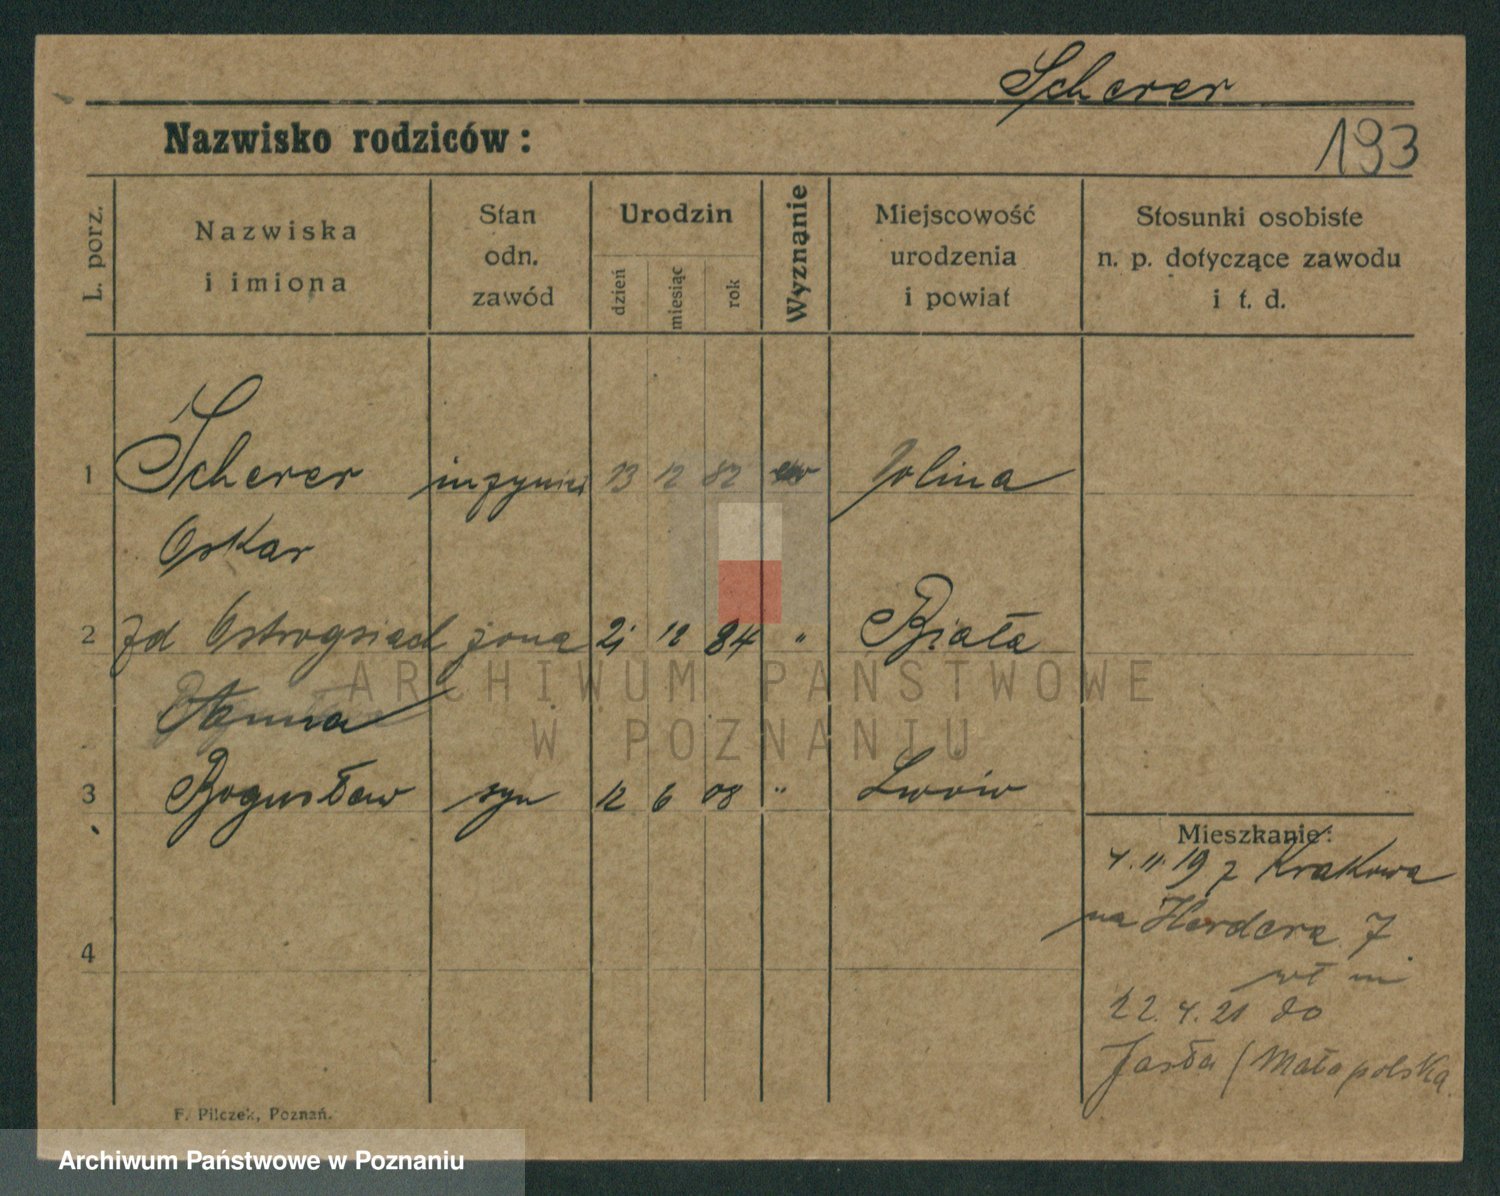 Scherer
Nazwisko rodziców:
193
L. porz.
Nazwiska
i imiona
Stan
odn.
zawód
Urodzin
dzień
miesiąc
rok
Wyznanie
Miejscowość
urodzenia
i powiat
Stosunki osobiste
n. p. dotyczące zawodu
i t. d.
1 Scherer inżynier 13 12 82 Jolina
Oskar
2 zd żona 21 12 84 " Biała
Anna
3 Bogusław syn 12 6 08 " Lwów
Mieszkanie:
4.11.19 z Krakowa
na Herdera 7
22.4.21 do
Jasła (Małopolska
4
F. Pilczek, Poznań.
ARCHIWUM PAŃSTWOWE
W POZNANIU
Archiwum Państwowe w Poznaniu